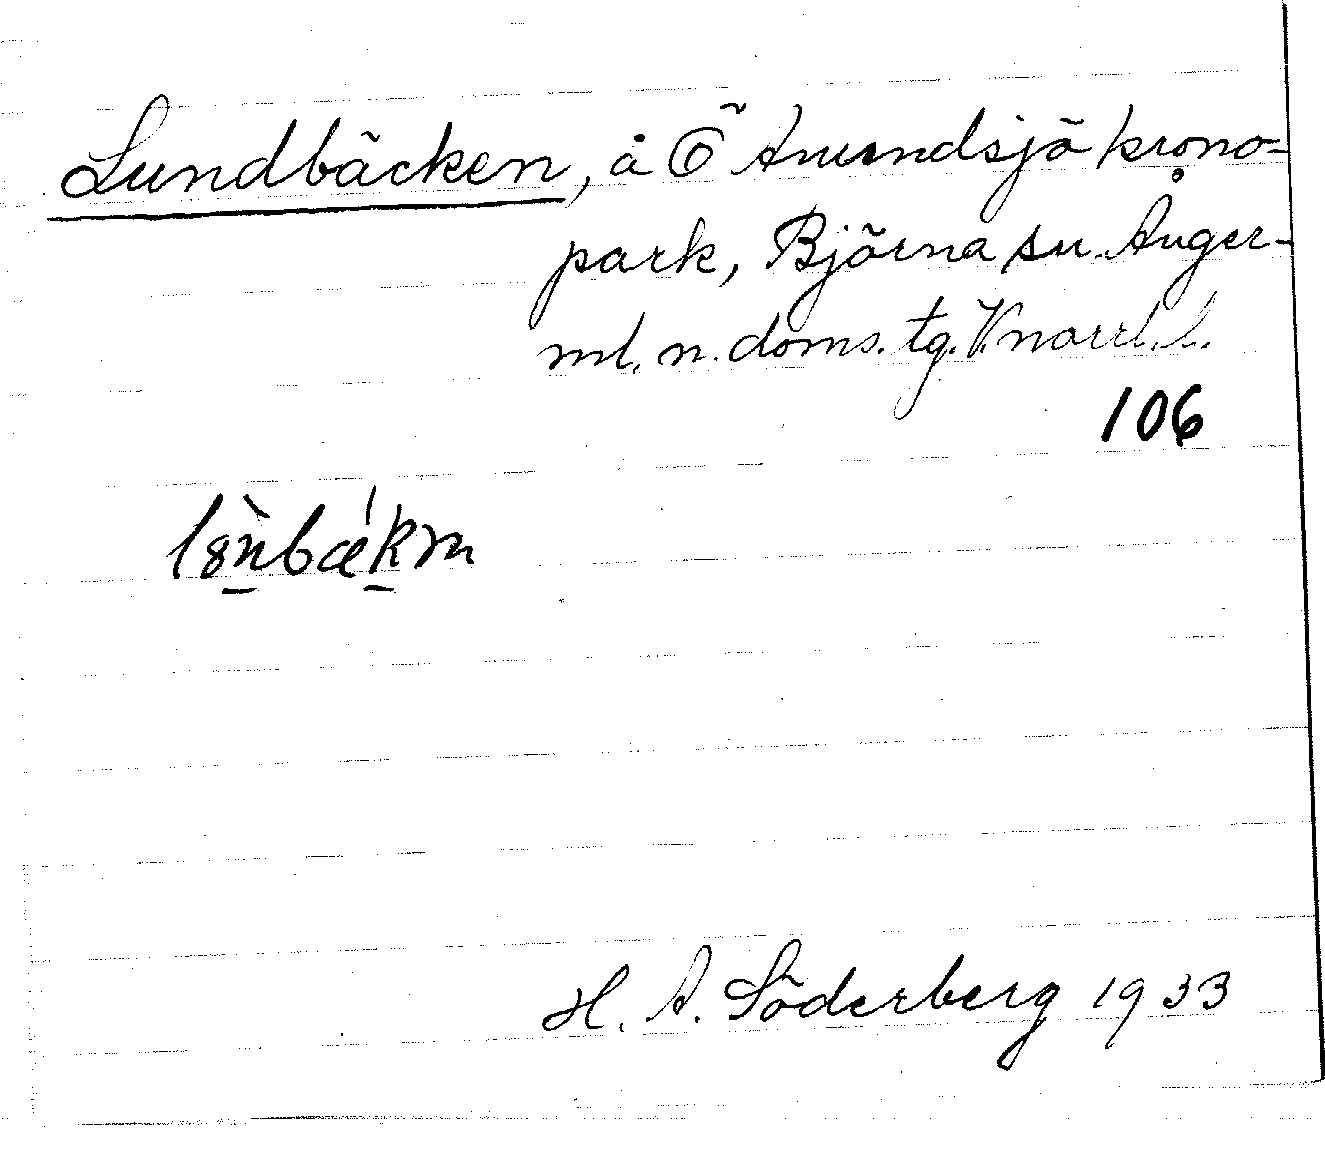 Lundbäcken, å Ö Anundsjö krono-
park, Björna sn. Ånger-
ml. n. doms. tg.
106
H. A. Söderberg 1933